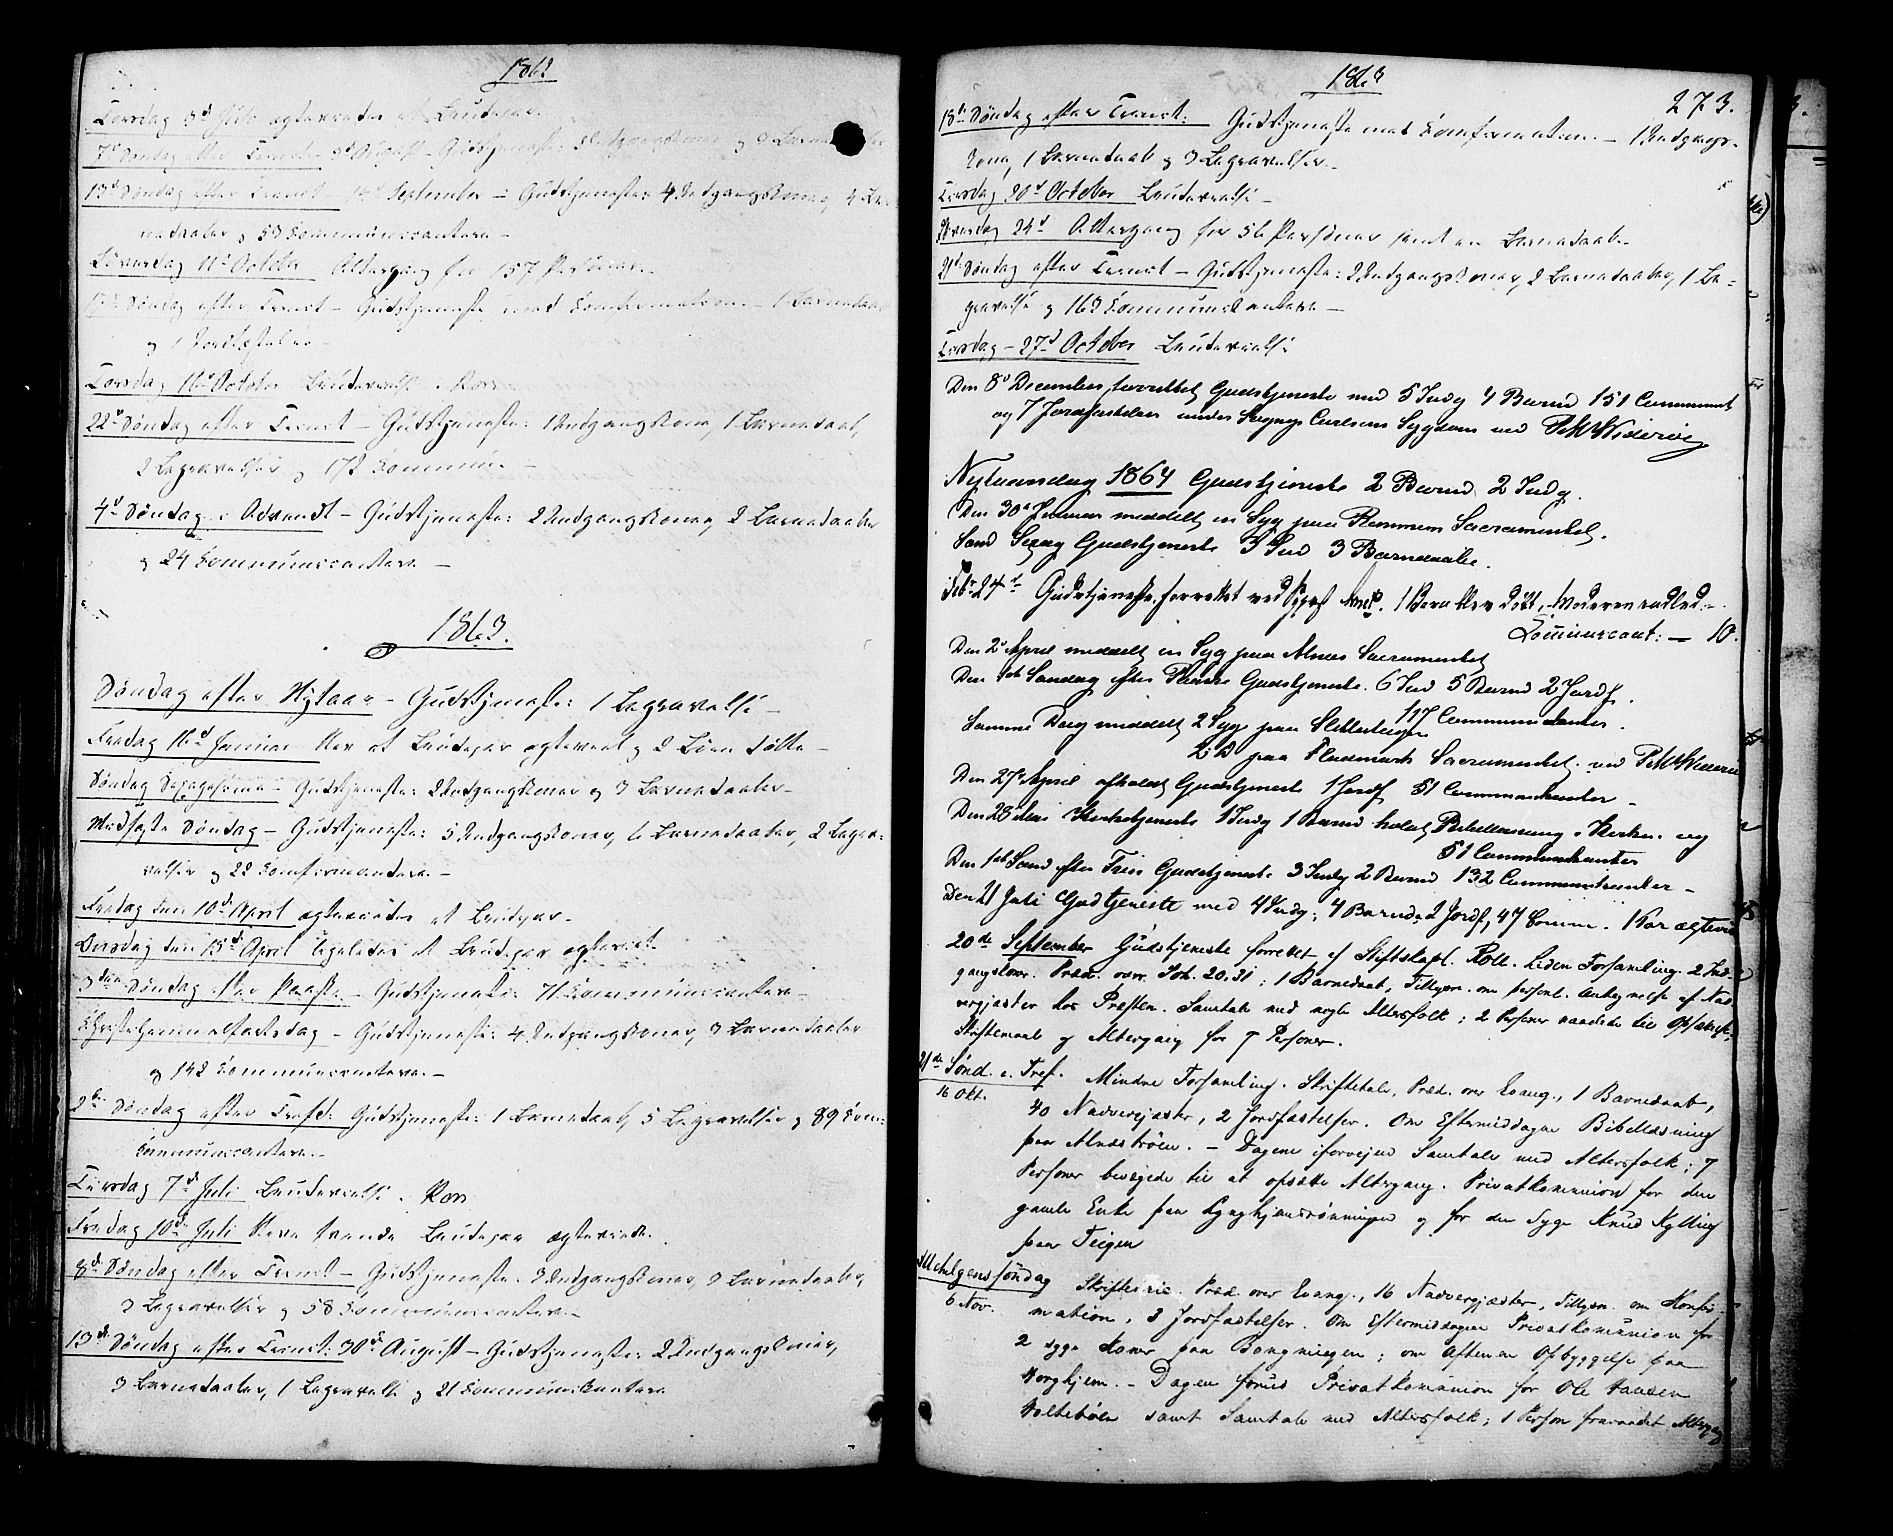 1862
Torsdag 3d Juli ægteviedes et Brudepar.
7d Søndag efter Trinit. – 3d August – Gudstjeneste: 3 Indgangskoner og 3 Barnedaabe
13d Søndag efter Trinit – 14d September – Gudstjeneste: 4 Indgangskoner, 4 Bar-
nedaaber og 53 Kommunicantere –
Løverdag 11d October Altergang for 157 Personer.
17de Søndag efter Trinit – Gudstjeneste med Konfirmation – 1 Barnedaab
og 1 Jordfæstelse –
Torsdag 16d October Brudevielse i Kors
22d Søndag efter Trinit – Gudstjeneste: 1 Indgangskone, 1 Barnedaab,
2 Begravelser og 172 Kommuni. –
4d Søndag i Advendt – Gudstjeneste: 2 Indgangskoner, 2 Barnedaaber
og 24 Kommunicantere –
1863.
Søndag efter Nytaar – Gudstjeneste: 1 Begravelse –
Fredag 16d Januar blev et Brudepar ægteviet og 2 Børn døbte –
Søndag Sexagesima – Gudstjeneste: 2 Indgangskoner og 3 Barnedaaber –
Midfaste Søndag – Gudstjeneste: 5 Indgangskoner, 6 Barnedaaber, 2 Begra-
velser og 22 Konfirmantere. –
Fredag den 10d April ægteviedes et Brudepar –
Onsdag den 15d April ligeledes et Brudepar ægteviet.
3die Søndag efter Paaske – Gudstjeneste: 71 Kommunicantere –
Christi Himmelfartsdag – Gudstjeneste: 4 Indgangskoner, 3 Barnedaaber
og 142 Kommunicantere. –
2den Søndag efter Trefd: Gudstjeneste: 1 Barnedaab, 5 Begravelser og 89 Kom-
Kommunicantere. –
Tirsdag 7d Juli Brudevielse i Kors
Fredag 10d Juli bleve tvende Brudepar ægteviede.
8d Søndag efter Trinit – Gudstjeneste: 3 Indgangskoner, 3 Barnedaaber,
3 Begravelser og 58 Kommunicantere –
13d Søndag efter Trinit: 30d August – Gudstjeneste: 2 Indgangskoner,
3 Barnedaaber, 1 Begravelse og 21 Kommunikantere
1863
273.
18de Søndag efter Trinit: Gudstjeneste med Konfirmation. – 1 Indgangs-
kone, 1 Barnedaab og 3 Begravelser. –
Torsdag 20d October Brudevielse –
Løverdag 24d Altergang for 56 Personer samt en Barnedaab.
21d Søndag efter Trinit – Gudstjeneste: 2 Indgangskoner, 2 Barnedaaber, 1 Be-
gravelse og 163 Kommunikantere –
Torsdag – 27d October Brudevielse
Den 8d December forrettet Gudstjeneste med 5 Indg 4 Barnd 151 Communt
og 7 Jordfæstelser under Sogneps Carlsens Sygdom ved
Nytaarsdag 1864 Gudstjeneste 2 Barnd 2 Indg.
Den 30d Januar meddelt en Syg paa Sacramentet.
Sønd Sexag Gudstjeneste 3 Ind 3 Barnedaabe.
Feb. 24d Gudstjeneste forrettet ved 1 Barn blev døbt, Moderen indled. –
Communicant: – 10.
Den 2d April meddelt en Syg paa Alnæs Sacramentet
Den 1st Søndag efter Paaske Gudstjeneste. 6 Ind 5 Barnd 2 Jordf.
117 Communikanter.
Samme Dag meddelt 2 Syge paa
paa Flademark Sacramentet ved
Den 27d April afholdt Gudstjeneste 1 Jordf 81 Communikanter –
Den 28 dens Kirketjeneste 1 Indg 1 Barnd holdt Bibellæsning i Kirken og
51 Communikanter
Den 1st Sønd efter Trin Gudstjeneste 3 Indg 2 Barnd 132 Communikanter –
Den 21 Juli Gudtjeneste med 4 Indg; 4 Barnd. 2 Jordf, 47 Comm. 1 Par ægteviet
20de September Gudstjeneste forrettet af Stiftskapl. Roll. Liden Forsamling. 2 Ind-
gangskoner. Præd. over Joh. 20.31; 1 Barnedaab, Tillysn. om personl. Antegnelse af Nad-
vergjæster hos Presten. Samtale med nogle Altersfolk; 2 Personer raadede til Opsættelse,
Skriftemaal og Altergang for 7 Personer.
21de Sønd. e. Tref.
16 Okt.
Mindre Forsamling. Skriftetale, Præd. over Evang., 1 Barnedaab,
40 Nadvergjæster, 2 Jordfæstelser. Om Eftermiddagen Bibellæsning
paa Alnæstrøen. – Dagene iforvejen Samtale med Altersfolk; 7
Personer bevægede til at opsætte Altergang. Privatkommunion for den
gamle Enke paa Lyngheimsrønningen og for den syge Knud Kylling
paa Teigen
Allehelgenssøndag
6 Nov.
Skriftetale. Præd. over Evang., 16 Nadvergjæster, Tillysn. om Konfir-
mation, 3 Jordfæstelser. Om Eftermiddagen Privatkommunion for
2 syge Koner paa ; om Aftenen Opbyggelse paa
Horghjem. – Dagen forud Privatkommunion for Ole Hansen
samt Samtale med Altersfolk; 1 Person fraraadet Altergang